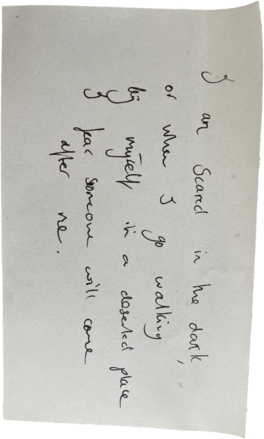 I am Scared in the dark,
or when I go walking
by myself in a deserted place
I fear someone will come
after me.